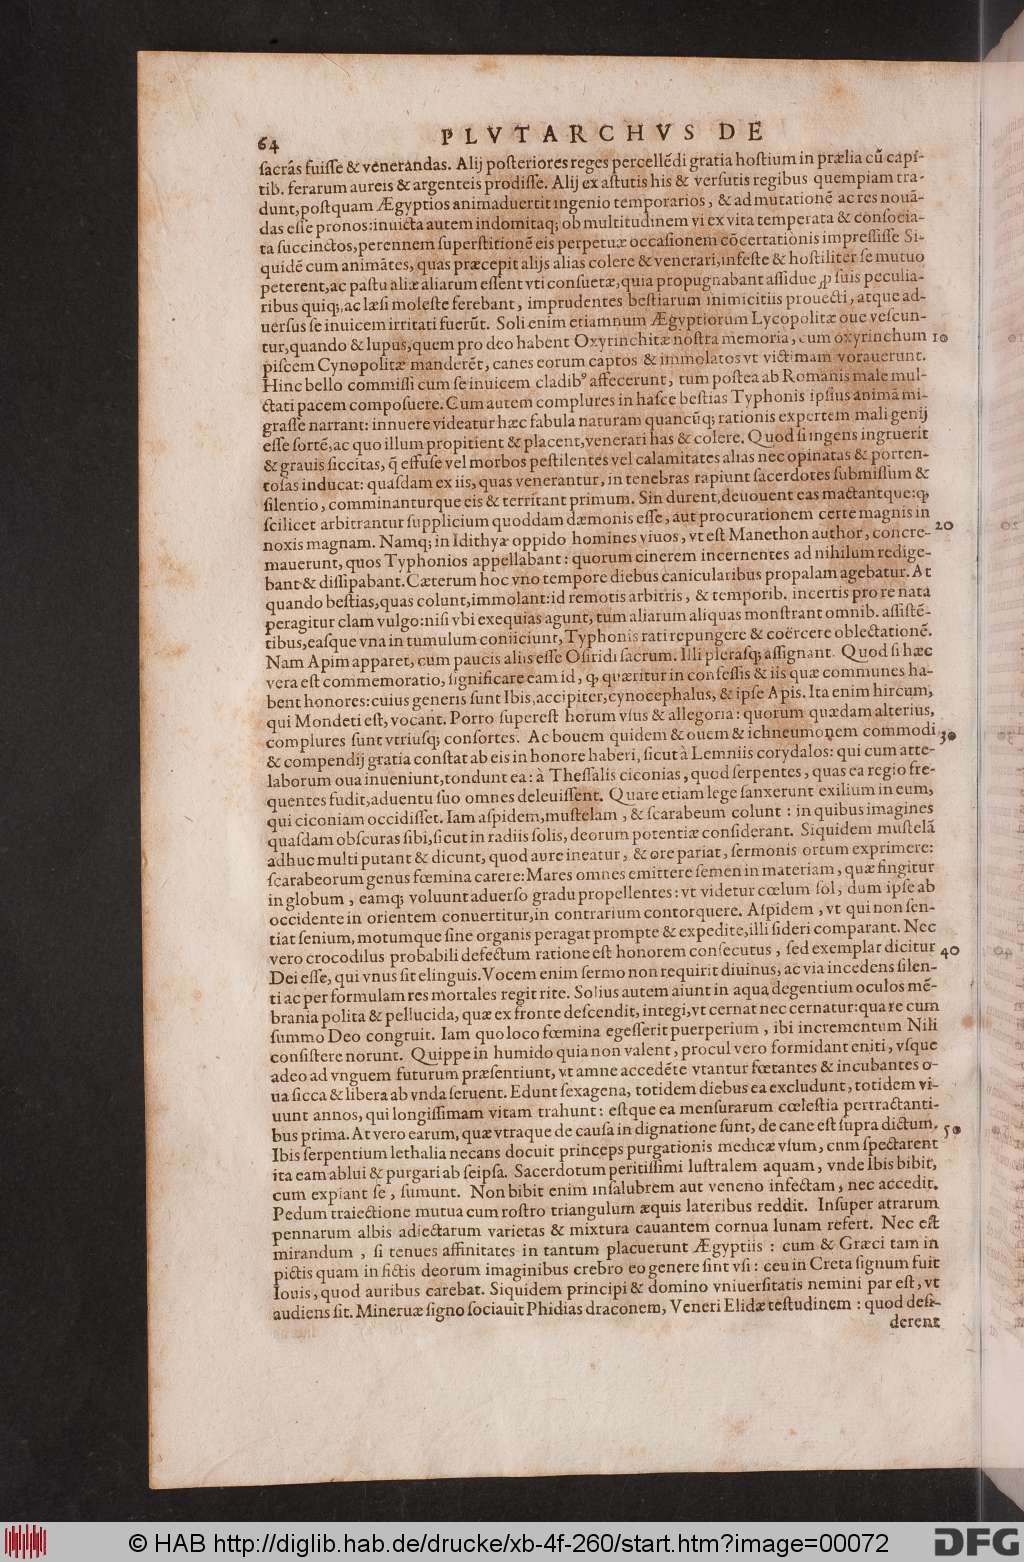 64 PLVTARCHVS DE
sacrâs fuisse & venerandas. Alij posteriores reges percellẽdi gratia hostium in prælia cũ capi-
tib. ferarum aureis & argenteis prodisse. Alij ex astutis his & versutis regibus quempiam tra-
dunt, postquam Ægyptios animaduertit ingenio temporarios, & ad mutationẽ ac res nouã-
das esse pronos: inuicta autem indomitaq; ob multitudinem vi ex vita temperata & consocia-
ta succinctos, perennem superstitionẽ eis perpetuæ occasionem cõcertationis impressisse Si-
quidẽ cum animãtes, quas præcepit alijs alias colere & venerari, infeste & hostiliter se mutuo
peterent, ac pastu aliæ aliarum essent vti consuetæ, quia propugnabant assidue ꝓ suis peculia-
ribus quiq;, ac læsi moleste ferebant, imprudentes bestiarum inimicitiis prouecti, atque ad-
uersus se inuicem irritati fuerũt. Soli enim etiamnum Ægyptiorum Lycopolitæ oue vescun-
tur, quando & lupus, quem pro deo habent Oxyrinchitæ nostra memoria, cum oxyrinchum 10
piscem Cynopolitæ manderẽt, canes eorum captos & immolatos vt victimam vorauerunt.
Hinc bello commissi cum se inuicem cladibꝰ affecerunt, tum postea ab Romanis male mul-
ctati pacem composuere. Cum autem complures in hasce bestias Typhonis ipsius animã mi-
grasse narrant: innuere videatur hæc fabula naturam quancũq; rationis expertem mali genij
esse sortẽ, ac quo illum propitient & placent, venerari has & colere. Quod si ingens ingruerit
& grauis siccitas, q̃ effuse vel morbos pestilentes vel calamitates alias nec opinatas & porten-
tosas inducat: quasdam ex iis, quas venerantur, in tenebras rapiunt sacerdotes submissum &
silentio, comminanturque eis & territant primum. Sin durent, deuouent eas mactantque: ꝙ
scilicet arbitrantur supplicium quoddam dæmonis esse, aut procurationem certe magnis in
noxis magnam. Namq; in Idithyæ oppido homines viuos, vt est Manethon author, concre- 20
mauerunt, quos Typhonios appellabant: quorum cinerem incernentes ad nihilum redige-
bant & dissipabant. Cæterum hoc vno tempore diebus canicularibus propalam agebatur. At
quando bestias, quas colunt, immolant: id remotis arbitris, & temporib. incertis pro re nata
peragitur clam vulgo: nisi vbi exequias agunt, tum aliarum aliquas monstrant omnib. assistẽ-
tibus, easque vna in tumulum coniiciunt, Typhonis rati repungere & coërcere oblectationẽ.
Nam Apim apparet, cum paucis aliis esse Osiridi sacrum. Illi plerasq; assignant. Quod si hæc
vera est commemoratio, significare eam id, ꝙ quæritur in confessis & iis quæ communes ha-
bent honores: cuius generis sunt Ibis, accipiter, cynocephalus, & ipse Apis. Ita enim hircum,
qui Mondeti est, vocant. Porro superest horum vsus & allegoria: quorum quædam alterius,
complures sunt vtriusq; consortes. Ac bouem quidem & ouem & ichneumonem commodi 30
& compendij gratia constat ab eis in honore haberi, sicut à Lemniis corydalos: qui cum atte-
laborum oua inueniunt, tondunt ea: à Thessalis ciconias, quod serpentes, quas ea regio fre-
quentes fudit, aduentu suo omnes deleuissent. Quare etiam lege sanxerunt exilium in eum,
qui ciconiam occidisset. Iam aspidem, mustelam, & scarabeum colunt: in quibus imagines
quasdam obscuras sibi, sicut in radiis solis, deorum potentiæ considerant. Siquidem mustelã
adhuc multi putant & dicunt, quod aure ineatur, & ore pariat, sermonis ortum exprimere:
scarabeorum genus fœmina carere: Mares omnes emittere semen in materiam, quæ fingitur
in globum, eamq; voluunt aduerso gradu propellentes: vt videtur cœlum sol, dum ipse ab
occidente in orientem conuertitur, in contrarium contorquere. Aspidem, vt qui non sen-
tiat senium, motumque sine organis peragat prompte & expedite, illi sideri comparant. Nec
vero crocodilus probabili defectum ratione est honorem consecutus, sed exemplar dicitur 40
Dei esse, qui vnus sit elinguis. Vocem enim sermo non requirit diuinus, ac via incedens silen-
ti ac per formulam res mortales regit rite. Solius autem aiunt in aqua degentium oculos mẽ-
brania polita & pellucida, quæ ex fronte descendit, integi, vt cernat nec cernatur: quare cum
summo Deo congruit. Iam quo loco fœmina egesserit puerperium, ibi incrementum Nili
consistere norunt. Quippe in humido quia non valent, procul vero formidant eniti, vsque
adeo ad vnguem futurum præsentiunt, vt amne accedẽte vtantur fœtantes & incubantes o-
ua sicca & libera ab vnda seruent. Edunt sexagena, totidem diebus ea excludunt, totidem vi-
uunt annos, qui longissimam vitam trahunt: estque ea mensurarum cœlestia pertractanti-
bus prima. At vero earum, quæ vtraque de causa in dignatione sunt, de cane est supra dictum. 50
Ibis serpentium lethalia necans docuit princeps purgationis medicæ vsum, cnm spectarent
ita eam ablui & purgari ab seipsa. Sacerdotum peritissimi lustralem aquam, vnde Ibis bibit,
cum expiant se, sumunt. Non bibit enim insalubrem aut veneno infectam, nec accedit.
Pedum traiectione mutua cum rostro triangulum æquis lateribus reddit. Insuper atrarum
pennarum albis adiectarum varietas & mixtura cauantem cornua lunam refert. Nec est
mirandum, si tenues affinitates in tantum placuerunt Ægyptiis: cum & Græci tam in
pictis quam in fictis deorum imaginibus crebro eo genere sint vsi: ceu in Creta signum fuit
Iouis, quod auribus carebat. Siquidem principi & domino vniuersitatis nemini par est, vt
audiens sit. Mineruæ signo sociauit Phidias draconem, Veneri Elidæ testudinem: quod desi-
derent
© HAB http://diglib.hab.de/drucke/xb-4f-260/start.htm?image=00072
DFG